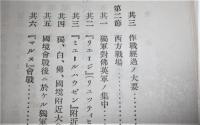 其三 作戰經過ノ大要
第二節 西方戰場
其一 獨軍對佛英軍ノ集中
其二 『リエージ』『リュッティヒ
其三 『ミュールハウゼン』附近
其四 獨、白、佛、國境附近大
其五 國境會戰後ニ於ケル獨軍
其六 『マルヌ』會戰